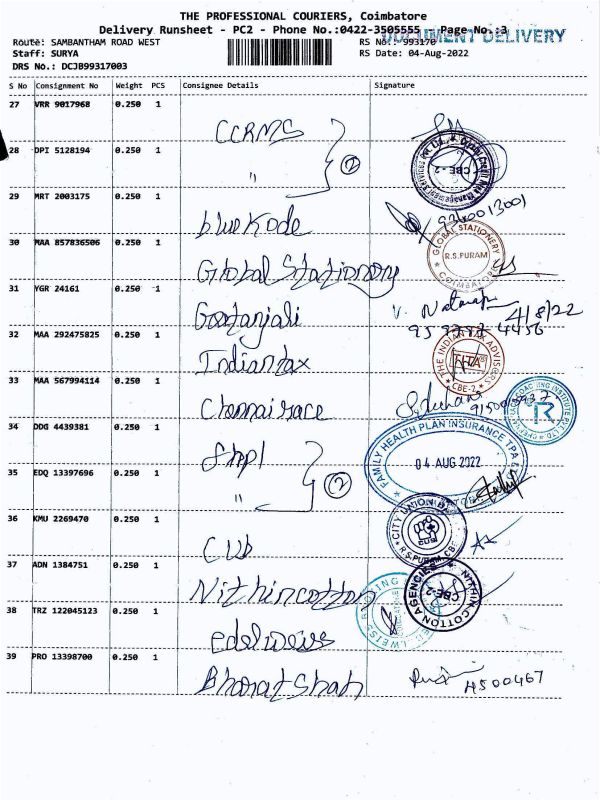 THE PROFESSIONAL COURIERS, Coimbatore
Delivery Runsheet - PC2 - Phone No.:0422-3505555 Page No.:3
DOCUMENT DELIVERY
Route: SAMBANTHAM ROAD WEST
RS No.: 993170
Staff: SURYA
RS Date: 04-Aug-2022
DRS No.: DCJB99317003
S No Consignment No Weight PCS Consignee Details Signature
27 VRR 9017968 0.250 1 CCRMS
28 DPI 5128194 0.250 1 " 2
CBE-2
29 MRT 2003175 0.250 1 bluekode 9360013001
30 MAA 857836506 0.250 1 Global Stationory
GLOBAL STATIONERY R.S.PURAM COIMBATORE
31 YGR 24161 0.250 1 Geetanjali 4/8/22
32 MAA 292475825 0.250 1 Indiantax
THE INDIAN TAX ADVISORS CBE-2
33 MAA 567994114 0.250 1 Chennairace
34 DDG 4439381 0.250 1 fhpl
FAMILY HEALTH PLAN INSURANCE TPA
04 AUG 2022
35 EDQ 13397696 0.250 1 " 2
36 KMU 2269470 0.250 1 CUb
CITY UNION CUB R.S.PURAM, CBE
37 ADN 1384751 0.250 1 Nithincotton
NITHIN COTTON AGENCIES CBE-2
38 TRZ 122045123 0.250 1 edelweiss
39 PRO 13398700 0.250 1 Bharat Shah